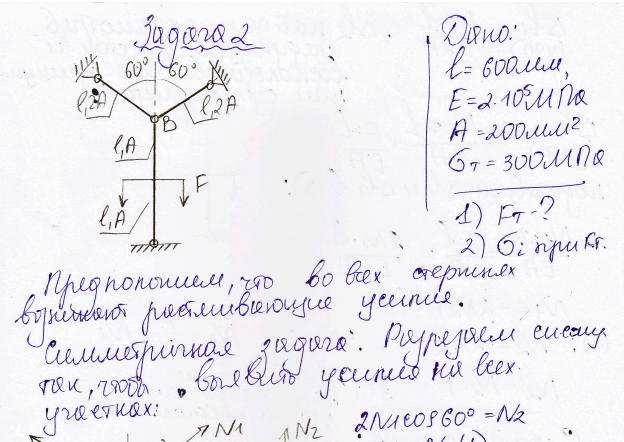 Задача 2
60° 60°
l,2A
l,2A
B
l,A
F
l,A
Дано:
l = 600мм,
E = 2·10⁵МПа
A = 200мм²
σт = 300МПа
1) Fт - ?
2) σi при Fт.
Предположим, что во всех стержнях
возникают растягивающие усилия.
Симметричная задача. Разрезаем систему
так, чтобы выявить усилия на всех
участках:
N1
N2
2N1cos60° = N2